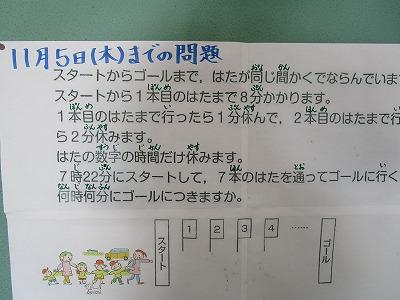 11月5日(木)までの問題
スタートからゴールまで，はたが同じ間かくでならんでいます
スタートから1本目のはたまで8分かかります。
1本目のはたまで行ったら1分休んで，2本目のはたまで行
ら2分休みます。
はたの数字の時間だけ休みます。
7時22分にスタートして，7本のはたを通ってゴールに行く
何時何分にゴールにつきますか。
スタート 1 2 3 4 …… ゴール